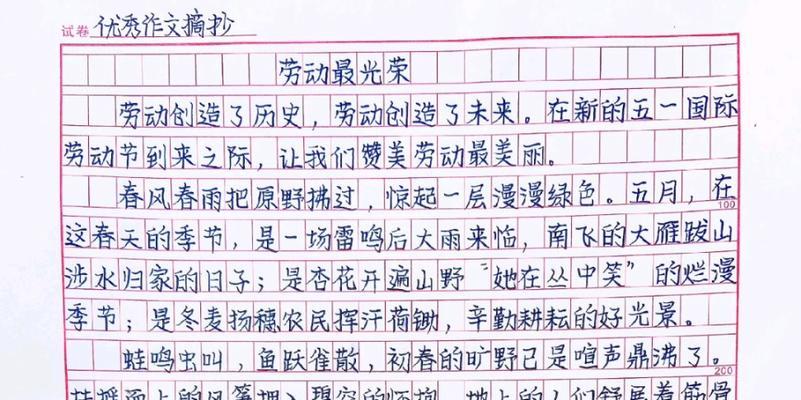 试卷 优秀作文摘抄
劳动最光荣
劳动创造了历史，劳动创造了未来。在新的五一国际
劳动节到来之际，让我们赞美劳动最美丽。
春风春雨把原野拂过，惊起一层漫漫绿色。五月，在
100
这春天的季节，是一场雷鸣后大雨来临，南飞的大雁跋山
涉水归家的日子；是杏花开遍山野“她在丛中笑”的烂漫
季节；是冬麦扬穗农民挥汗荷锄，辛勤耕耘的好光景。
蛙鸣虫叫，鱼跃雀散，初春的旷野已是喧声鼎沸了。
200
扶摇而上的风筝埋入碧空的怀抱，地上的人们舒展着筋骨